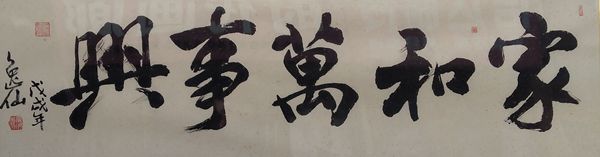 家和萬事興
戊戌年